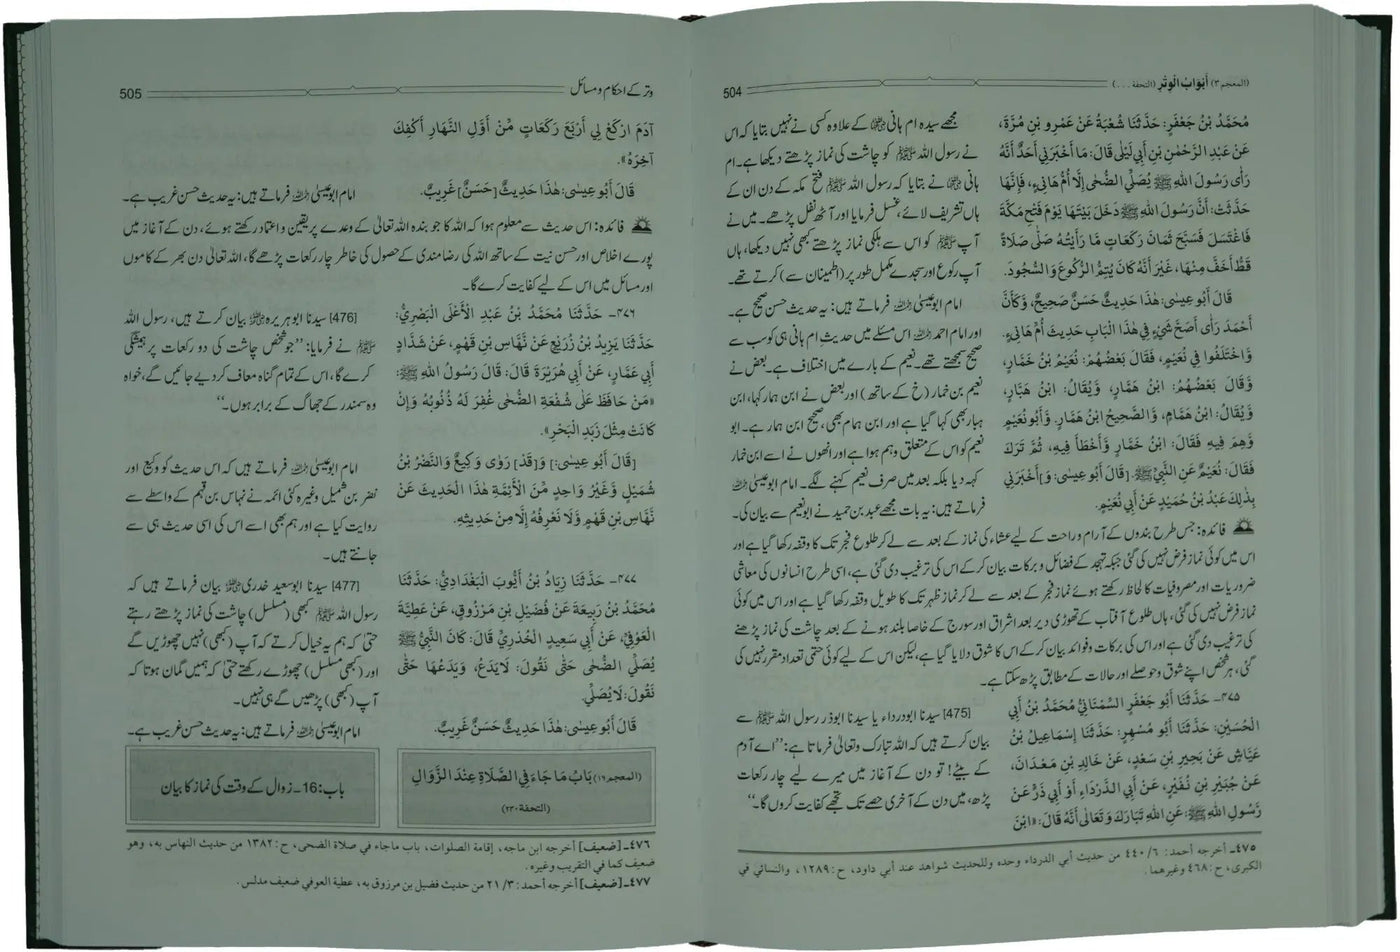 504
(المعجم ٣) أَبْوَابُ الْوِتْرِ (التحفة . . .)
مُحَمَّدُ بْنُ جَعْفَرٍ: حَدَّثَنَا شُعْبَةُ عَنْ عَمْرِو بْنِ مُرَّةَ،
عَنْ عَبْدِ الرَّحْمٰنِ بْنِ أَبِي لَيْلَى قَالَ: مَا أَخْبَرَنِي أَحَدٌ أَنَّهُ
رَأَى رَسُولَ اللهِ ﷺ يُصَلِّي الضُّحَى إِلَّا أُمُّ هَانِىءٍ، فَإِنَّهَا
حَدَّثَتْ: أَنَّ رَسُولَ اللهِ ﷺ دَخَلَ بَيْتَهَا يَوْمَ فَتْحِ مَكَّةَ
فَاغْتَسَلَ فَسَبَّحَ ثَمَانَ رَكَعَاتٍ مَّا رَأَيْتُهُ صَلَّى صَلَاةً
قَطُّ أَخَفَّ مِنْهَا، غَيْرَ أَنَّهُ كَانَ يُتِمُّ الرُّكُوعَ وَالسُّجُودَ.
قَالَ أَبُو عِيسَى: هٰذَا حَدِيثٌ حَسَنٌ صَحِيحٌ، وَكَأَنَّ
أَحْمَدَ رَأَى أَصَحَّ شَيْءٍ فِي هٰذَا الْبَابِ حَدِيثَ أُمِّ هَانِىءٍ.
وَاخْتَلَفُوا فِي نُعَيْمٍ، فَقَالَ بَعْضُهُمْ: نُعَيْمُ بْنُ خَمَّارٍ،
وَقَالَ بَعْضُهُمْ: ابْنُ هَمَّارٍ، وَيُقَالُ: ابْنُ هَبَّارٍ،
وَيُقَالُ: ابْنُ هَمَّامٍ، وَالصَّحِيحُ ابْنُ هَمَّارٍ. وَأَبُو نُعَيْمٍ
وَهِمَ فِيهِ فَقَالَ: ابْنُ خَمَّارٍ وَأَخْطَأَ فِيهِ، ثُمَّ تَرَكَ
فَقَالَ: نُعَيْمٌ عَنِ النَّبِيِّ ﷺ. [قَالَ أَبُو عِيسَى: وَ]أَخْبَرَنِي
بِذٰلِكَ عَبْدُ بْنُ حُمَيْدٍ عَنْ أَبِي نُعَيْمٍ.
مجھے سیدہ ام ہانی ؓ کے علاوہ کسی نے نہیں بتایا کہ اس
نے رسول اللہ ﷺ کو چاشت کی نماز پڑھتے دیکھا ہے۔ ام
ہانی ؓ نے بتایا کہ رسول اللہ ﷺ فتح مکہ کے دن ان کے
ہاں تشریف لائے، غسل فرمایا اور آٹھ نفل پڑھے۔ میں نے
آپ ﷺ کو اس سے ہلکی نماز پڑھتے کبھی نہیں دیکھا، ہاں
آپ رکوع اور سجدے مکمل طور پر (اطمینان سے) کرتے تھے۔
امام ابوعیسیٰ ؒ فرماتے ہیں: یہ حدیث حسن صحیح ہے۔
اور امام احمد ؒ اس مسئلے میں حدیثِ ام ہانی ہی کو سب سے
صحیح سمجھتے تھے۔ نعیم کے بارے میں اختلاف ہے۔ بعض نے
نعیم بن خمار (خ کے ساتھ) اور بعض نے ابن ہمار کہا، ابن
ہبار بھی کہا گیا ہے اور ابن ہمام بھی، صحیح ابن ہمار ہے۔ ابو
نعیم کو اس کے متعلق وہم ہوا ہے اور انھوں نے اسے ابن خمار
کہہ دیا بلکہ بعد میں صرف نعیم کہنے لگے۔ امام ابوعیسیٰ ؒ
فرماتے ہیں: یہ بات مجھے عبد بن حمید نے ابونعیم سے بیان کی۔
فائدہ: جس طرح بندوں کے آرام و راحت کے لیے عشاء کی نماز کے بعد سے لے کر طلوع فجر تک کا وقفہ رکھا گیا ہے اور
اس میں کوئی نماز فرض نہیں کی گئی جبکہ تہجد کے فضائل و برکات بیان کر کے اس کی ترغیب دی گئی ہے، اسی طرح انسانوں کی معاشی
ضروریات اور مصروفیات کا لحاظ رکھتے ہوئے نماز فجر کے بعد سے لے کر نماز ظہر تک کا طویل وقفہ رکھا گیا ہے اور اس میں کوئی
نماز فرض نہیں کی گئی، ہاں طلوع آفتاب کے تھوڑی دیر بعد اشراق اور سورج کے خاصا بلند ہونے کے بعد چاشت کی نماز پڑھنے
کی ترغیب دی گئی ہے اور اس کی برکات و فوائد بیان کر کے اس کا شوق دلایا گیا ہے، لیکن اس کے لیے کوئی حتمی تعداد مقرر نہیں کی
گئی، ہر شخص اپنے شوق و حوصلے اور حالات کے مطابق پڑھ سکتا ہے۔
٤٧٥۔ حَدَّثَنَا أَبُو جَعْفَرٍ السِّمْنَانِيُّ مُحَمَّدُ بْنُ أَبِي
الْحُسَيْنِ: حَدَّثَنَا أَبُو مُسْهِرٍ: حَدَّثَنَا إِسْمَاعِيلُ بْنُ
عَيَّاشٍ عَنْ بَحِيرِ بْنِ سَعْدٍ، عَنْ خَالِدِ بْنِ مَعْدَانَ،
عَنْ جُبَيْرِ بْنِ نُفَيْرٍ، عَنْ أَبِي الدَّرْدَاءِ أَوْ أَبِي ذَرٍّ عَنْ
رَسُولِ اللهِ ﷺ: عَنِ اللهِ تَبَارَكَ وَتَعَالَى أَنَّهُ قَالَ: «ابْنَ
[475] سیدنا ابودرداء یا سیدنا ابوذر رسول اللہ ﷺ سے
بیان کرتے ہیں کہ اللہ تبارک و تعالیٰ فرماتا ہے: ’’اے آدم
کے بیٹے! تو دن کے آغاز میں میرے لیے چار رکعات
پڑھ، میں دن کے آخری حصے تک تجھے کفایت کروں گا۔‘‘
٤٧٥۔ أخرجه أحمد: ٦/ ٤٤٠ من حديث أبي الدرداء وحده وللحديث شواهد عند أبي داود، ح: ١٢٨٩، والنسائي في
الكبرى، ح: ٤٦٨ وغيرهما.
505
وتر کے احکام و مسائل
آدَمَ ارْكَعْ لِي أَرْبَعَ رَكَعَاتٍ مِّنْ أَوَّلِ النَّهَارِ أَكْفِكَ
آخِرَهُ».
قَالَ أَبُو عِيسَى: هٰذَا حَدِيثٌ [حَسَنٌ] غَرِيبٌ.
امام ابوعیسیٰ ؒ فرماتے ہیں: یہ حدیث حسن غریب ہے۔
فائدہ: اس حدیث سے معلوم ہوا کہ اللہ کا جو بندہ اللہ تعالیٰ کے وعدے پر یقین و اعتماد رکھتے ہوئے، دن کے آغاز میں
پورے اخلاص اور حسن نیت کے ساتھ اللہ کی رضا مندی کے حصول کی خاطر چار رکعات پڑھے گا، اللہ تعالیٰ دن بھر کے کاموں
اور مسائل میں اس کے لیے کفایت کرے گا۔
٤٧٦۔ حَدَّثَنَا مُحَمَّدُ بْنُ عَبْدِ الْأَعْلَى الْبَصْرِيُّ:
حَدَّثَنَا يَزِيدُ بْنُ زُرَيْعٍ عَنْ نَّهَّاسِ بْنِ قَهْمٍ، عَنْ شَدَّادٍ
أَبِي عَمَّارٍ، عَنْ أَبِي هُرَيْرَةَ قَالَ: قَالَ رَسُولُ اللهِ ﷺ:
«مَنْ حَافَظَ عَلَى شُفْعَةِ الضُّحَى غُفِرَ لَهُ ذُنُوبُهُ وَإِنْ
كَانَتْ مِثْلَ زَبَدِ الْبَحْرِ».
[476] سیدنا ابوہریرہ ؓ بیان کرتے ہیں، رسول اللہ
ﷺ نے فرمایا: ’’جو شخص چاشت کی دو رکعات پر ہمیشگی
کرے گا، اس کے تمام گناہ معاف کر دیے جائیں گے، خواہ
وہ سمندر کے جھاگ کے برابر ہوں۔‘‘
[قَالَ أَبُو عِيسَى:] وَ[قَدْ] رَوَى وَكِيعٌ وَالنَّضْرُ بْنُ
شُمَيْلٍ وَّغَيْرُ وَاحِدٍ مِّنَ الْأَئِمَّةِ هٰذَا الْحَدِيثَ عَنْ
نَّهَّاسِ بْنِ قَهْمٍ وَّلَا نَعْرِفُهُ إِلَّا مِنْ حَدِيثِهِ.
امام ابوعیسیٰ ؒ فرماتے ہیں کہ اس حدیث کو وکیع اور
نضر بن شمیل وغیرہ کئی ائمہ نے نہاس بن قہم کے واسطے سے
روایت کیا ہے اور ہم بھی اسے اس کی اسی حدیث ہی سے
جانتے ہیں۔
٤٧٧۔ حَدَّثَنَا زِيَادُ بْنُ أَيُّوبَ الْبَغْدَادِيُّ: حَدَّثَنَا
مُحَمَّدُ بْنُ رَبِيعَةَ عَنْ فُضَيْلِ بْنِ مَرْزُوقٍ، عَنْ عَطِيَّةَ
الْعَوْفِيِّ، عَنْ أَبِي سَعِيدٍ الْخُدْرِيِّ قَالَ: كَانَ النَّبِيُّ ﷺ
يُصَلِّي الضُّحَى حَتَّى نَقُولَ: لَا يَدَعُ، وَيَدَعُهَا حَتَّى
نَقُولَ: لَا يُصَلِّي.
[477] سیدنا ابوسعید خدری ؓ بیان فرماتے ہیں کہ
رسول اللہ ﷺ کبھی (مسلسل) چاشت کی نماز پڑھتے رہتے
حتیٰ کہ ہم یہ خیال کرتے کہ آپ (کبھی) نہیں چھوڑیں گے
اور (کبھی مسلسل) چھوڑے رکھتے حتیٰ کہ ہمیں گمان ہوتا کہ
آپ (کبھی) پڑھیں گے ہی نہیں۔
قَالَ أَبُو عِيسَى: هٰذَا حَدِيثٌ حَسَنٌ غَرِيبٌ.
امام ابوعیسیٰ ؒ فرماتے ہیں: یہ حدیث حسن غریب ہے۔
(المعجم ١٦) بَابُ مَا جَاءَ فِي الصَّلَاةِ عِنْدَ الزَّوَالِ
(التحفة ٢٣٠)
باب: 16۔ زوال کے وقت کی نماز کا بیان
٤٧٦۔ [ضعيف] أخرجه ابن ماجه، إقامة الصلوات، باب ماجاء في صلاة الضحى، ح: ١٣٨٢ من حديث النهاس به، وهو
ضعيف كما في التقريب وغيره.
٤٧٧۔ [ضعيف] أخرجه أحمد: ٣/ ٢١ من حديث فضيل بن مرزوق به، عطية العوفي ضعيف مدلس.